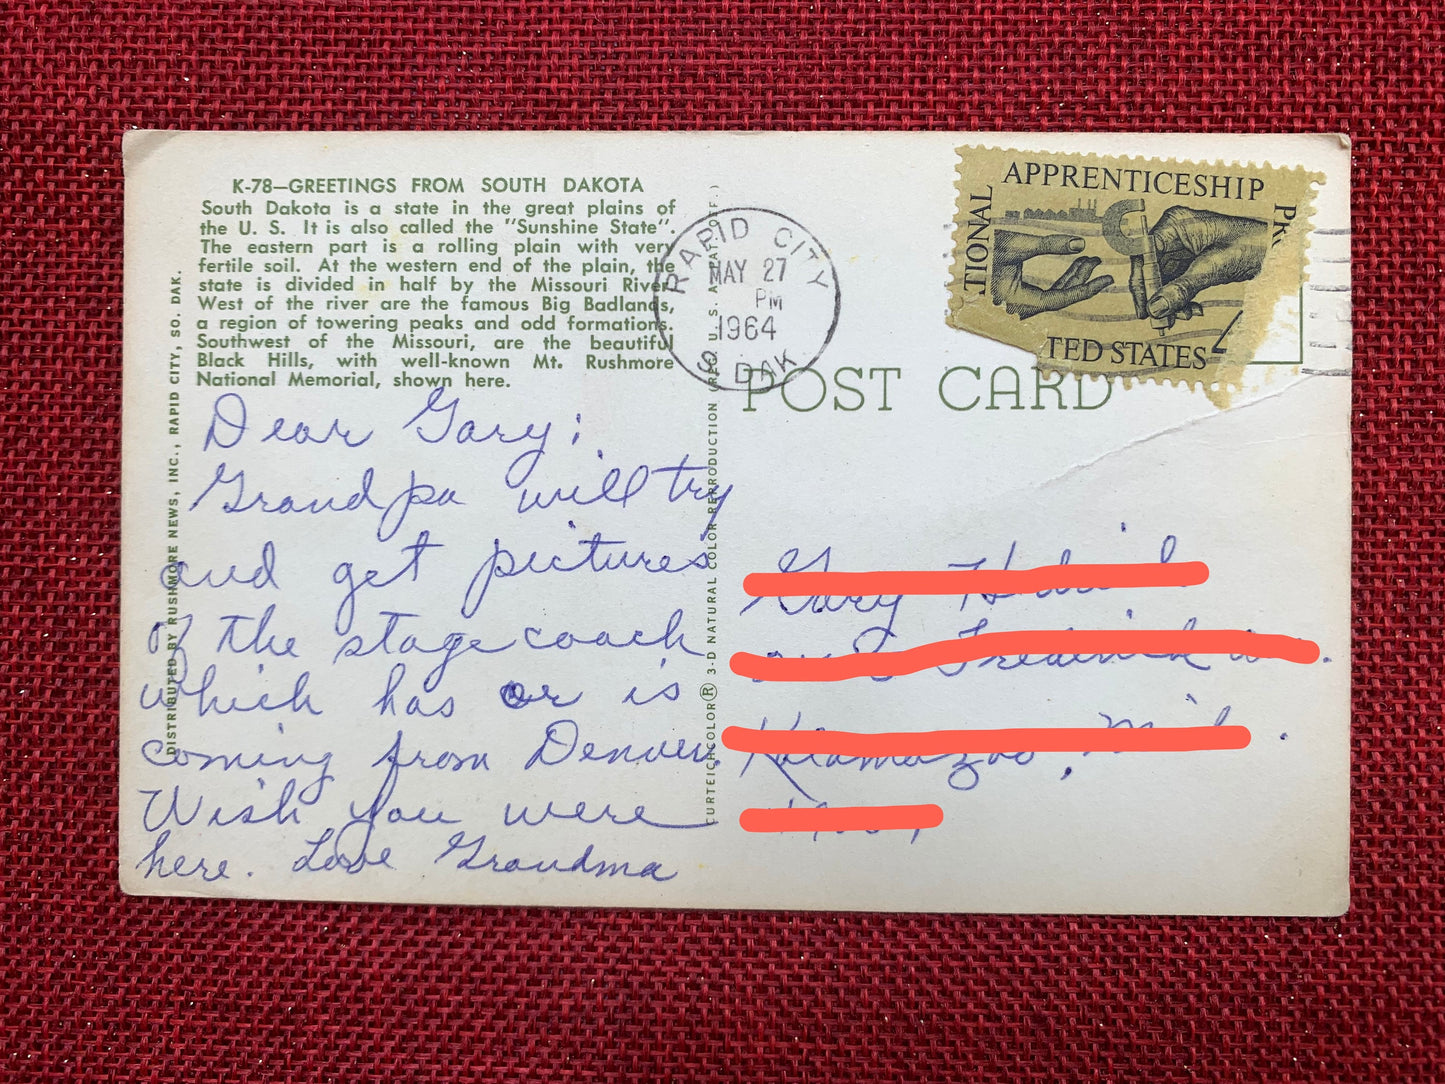 K-78—GREETINGS FROM SOUTH DAKOTA
South Dakota is a state in the great plains of
the U. S. It is also called the "Sunshine State".
The eastern part is a rolling plain with very
fertile soil. At the western end of the plain, the
state is divided in half by the Missouri River.
West of the river are the famous Big Badlands,
a region of towering peaks and odd formations.
Southwest of the Missouri, are the beautiful
Black Hills, with well-known Mt. Rushmore
National Memorial, shown here.
Dear Gary:
Grandpa will try
and get pictures
of the stagecoach
which has or is
coming from Denver.
Wish you were
here. Love Grandma
DISTRIBUTED BY RUSHMORE NEWS, INC., RAPID CITY, SO. DAK.
CURTEICHCOLOR® 3-D NATURAL COLOR REPRODUCTION (REG. U.S.A.
RAPID CITY
MAY 27
PM
1964
S. DAK.
TIONAL
APPRENTICESHIP
PR
TED STATES
POST CARD
Gary
Kalamazoo,